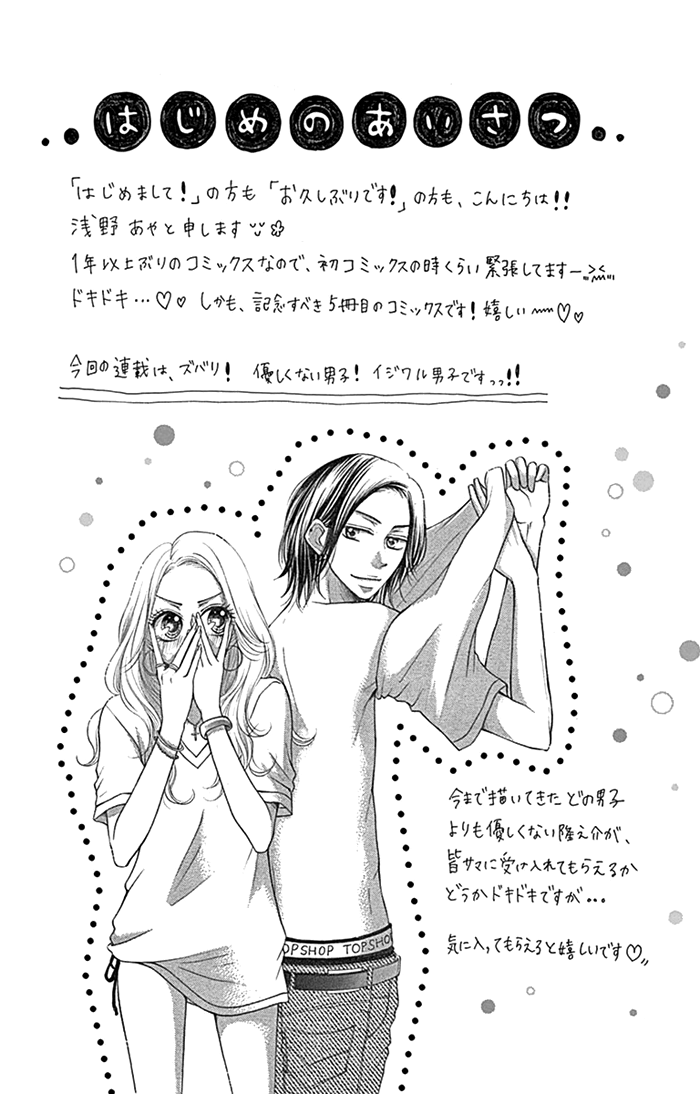 はじめのあいさつ
「はじめまして!」の方も「お久しぶりです!」の方も、こんにちは!!
浅野 あやと申します
1年以上ぶりのコミックスなので、初コミックスの時くらい緊張してますー
ドキドキ…♡♡ しかも、記念すべき5冊目のコミックスです!嬉しい〜♡♡
今回の連載は、ズバリ! 優しくない男子!イジワル男子ですっっ!!
今まで描いてきたどの男子
よりも優しくない隆之介が、
皆サマに受け入れてもらえるか
どうかドキドキですが…
気に入ってもらえると嬉しいです♡〃
OPSHOP TOPSHO